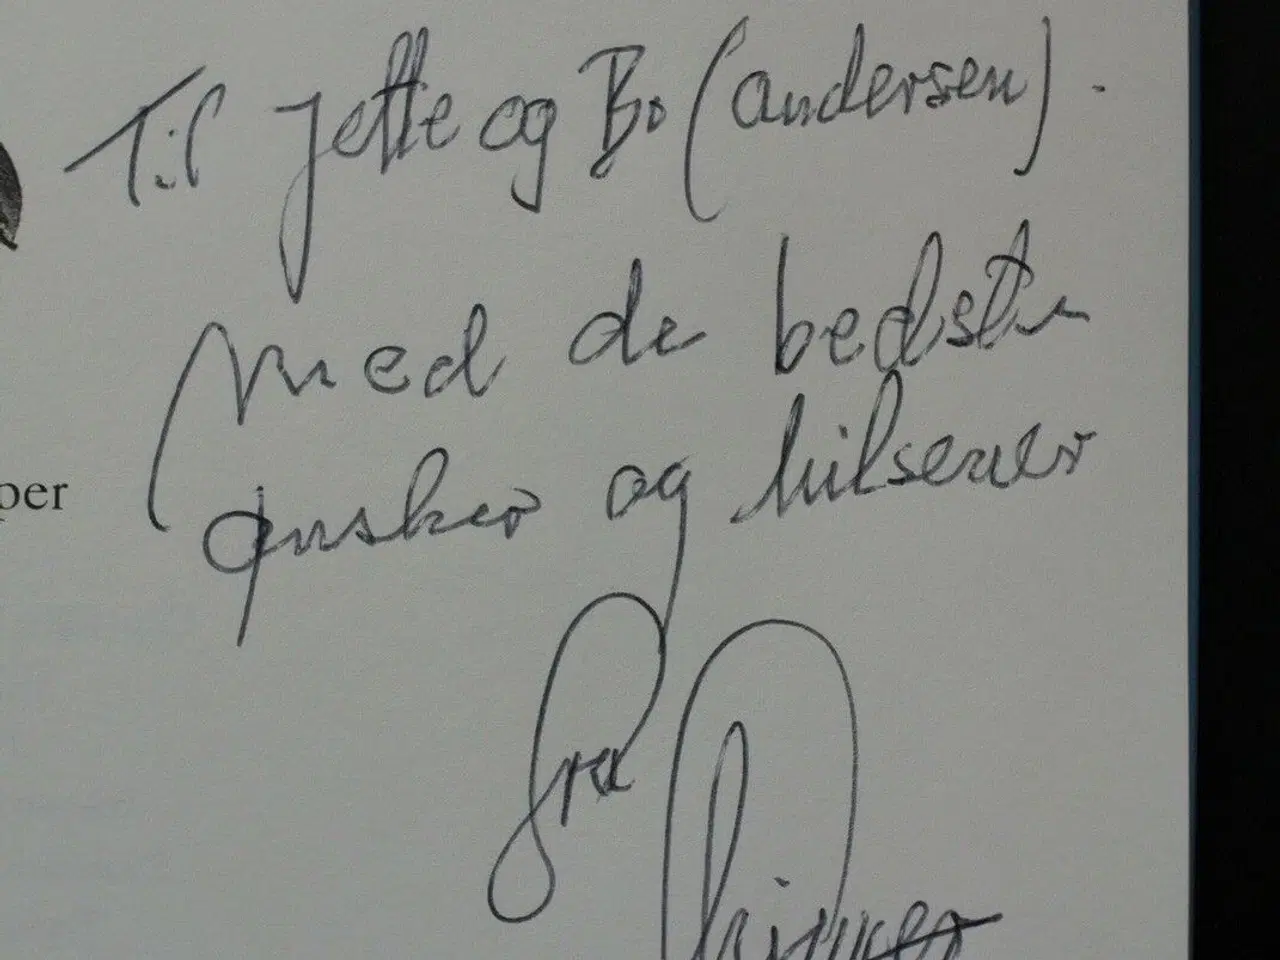 Til Jette og Bo (andersen).
Med de bedste
per
ønsker og hilsener
fra